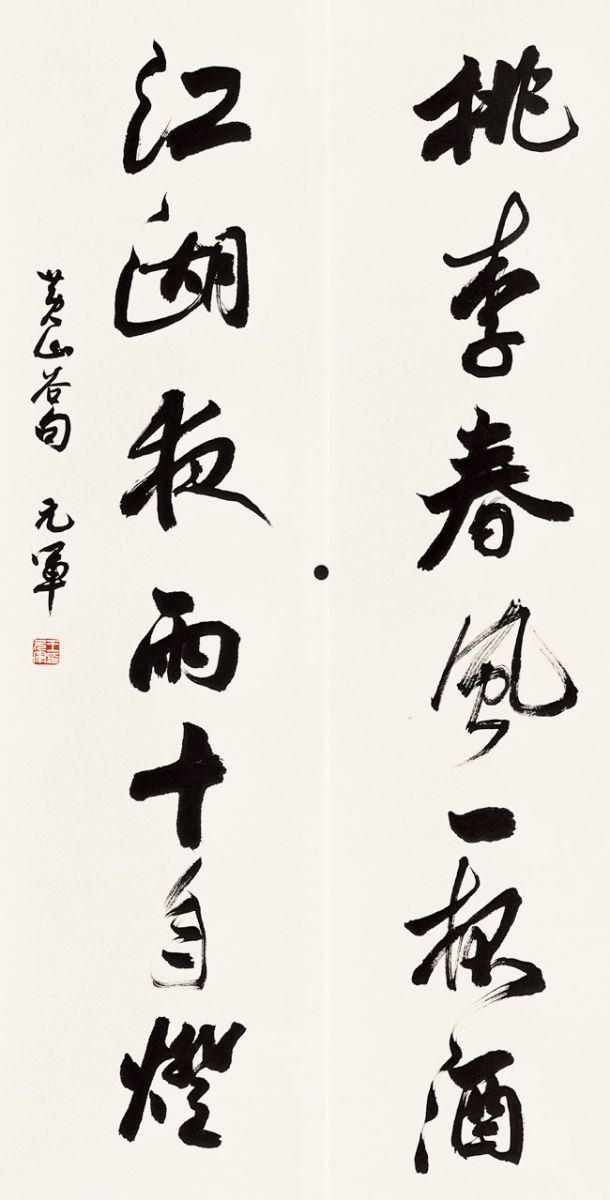 桃李春風一杯酒
江湖夜雨十自燈
黄山谷句 元軍